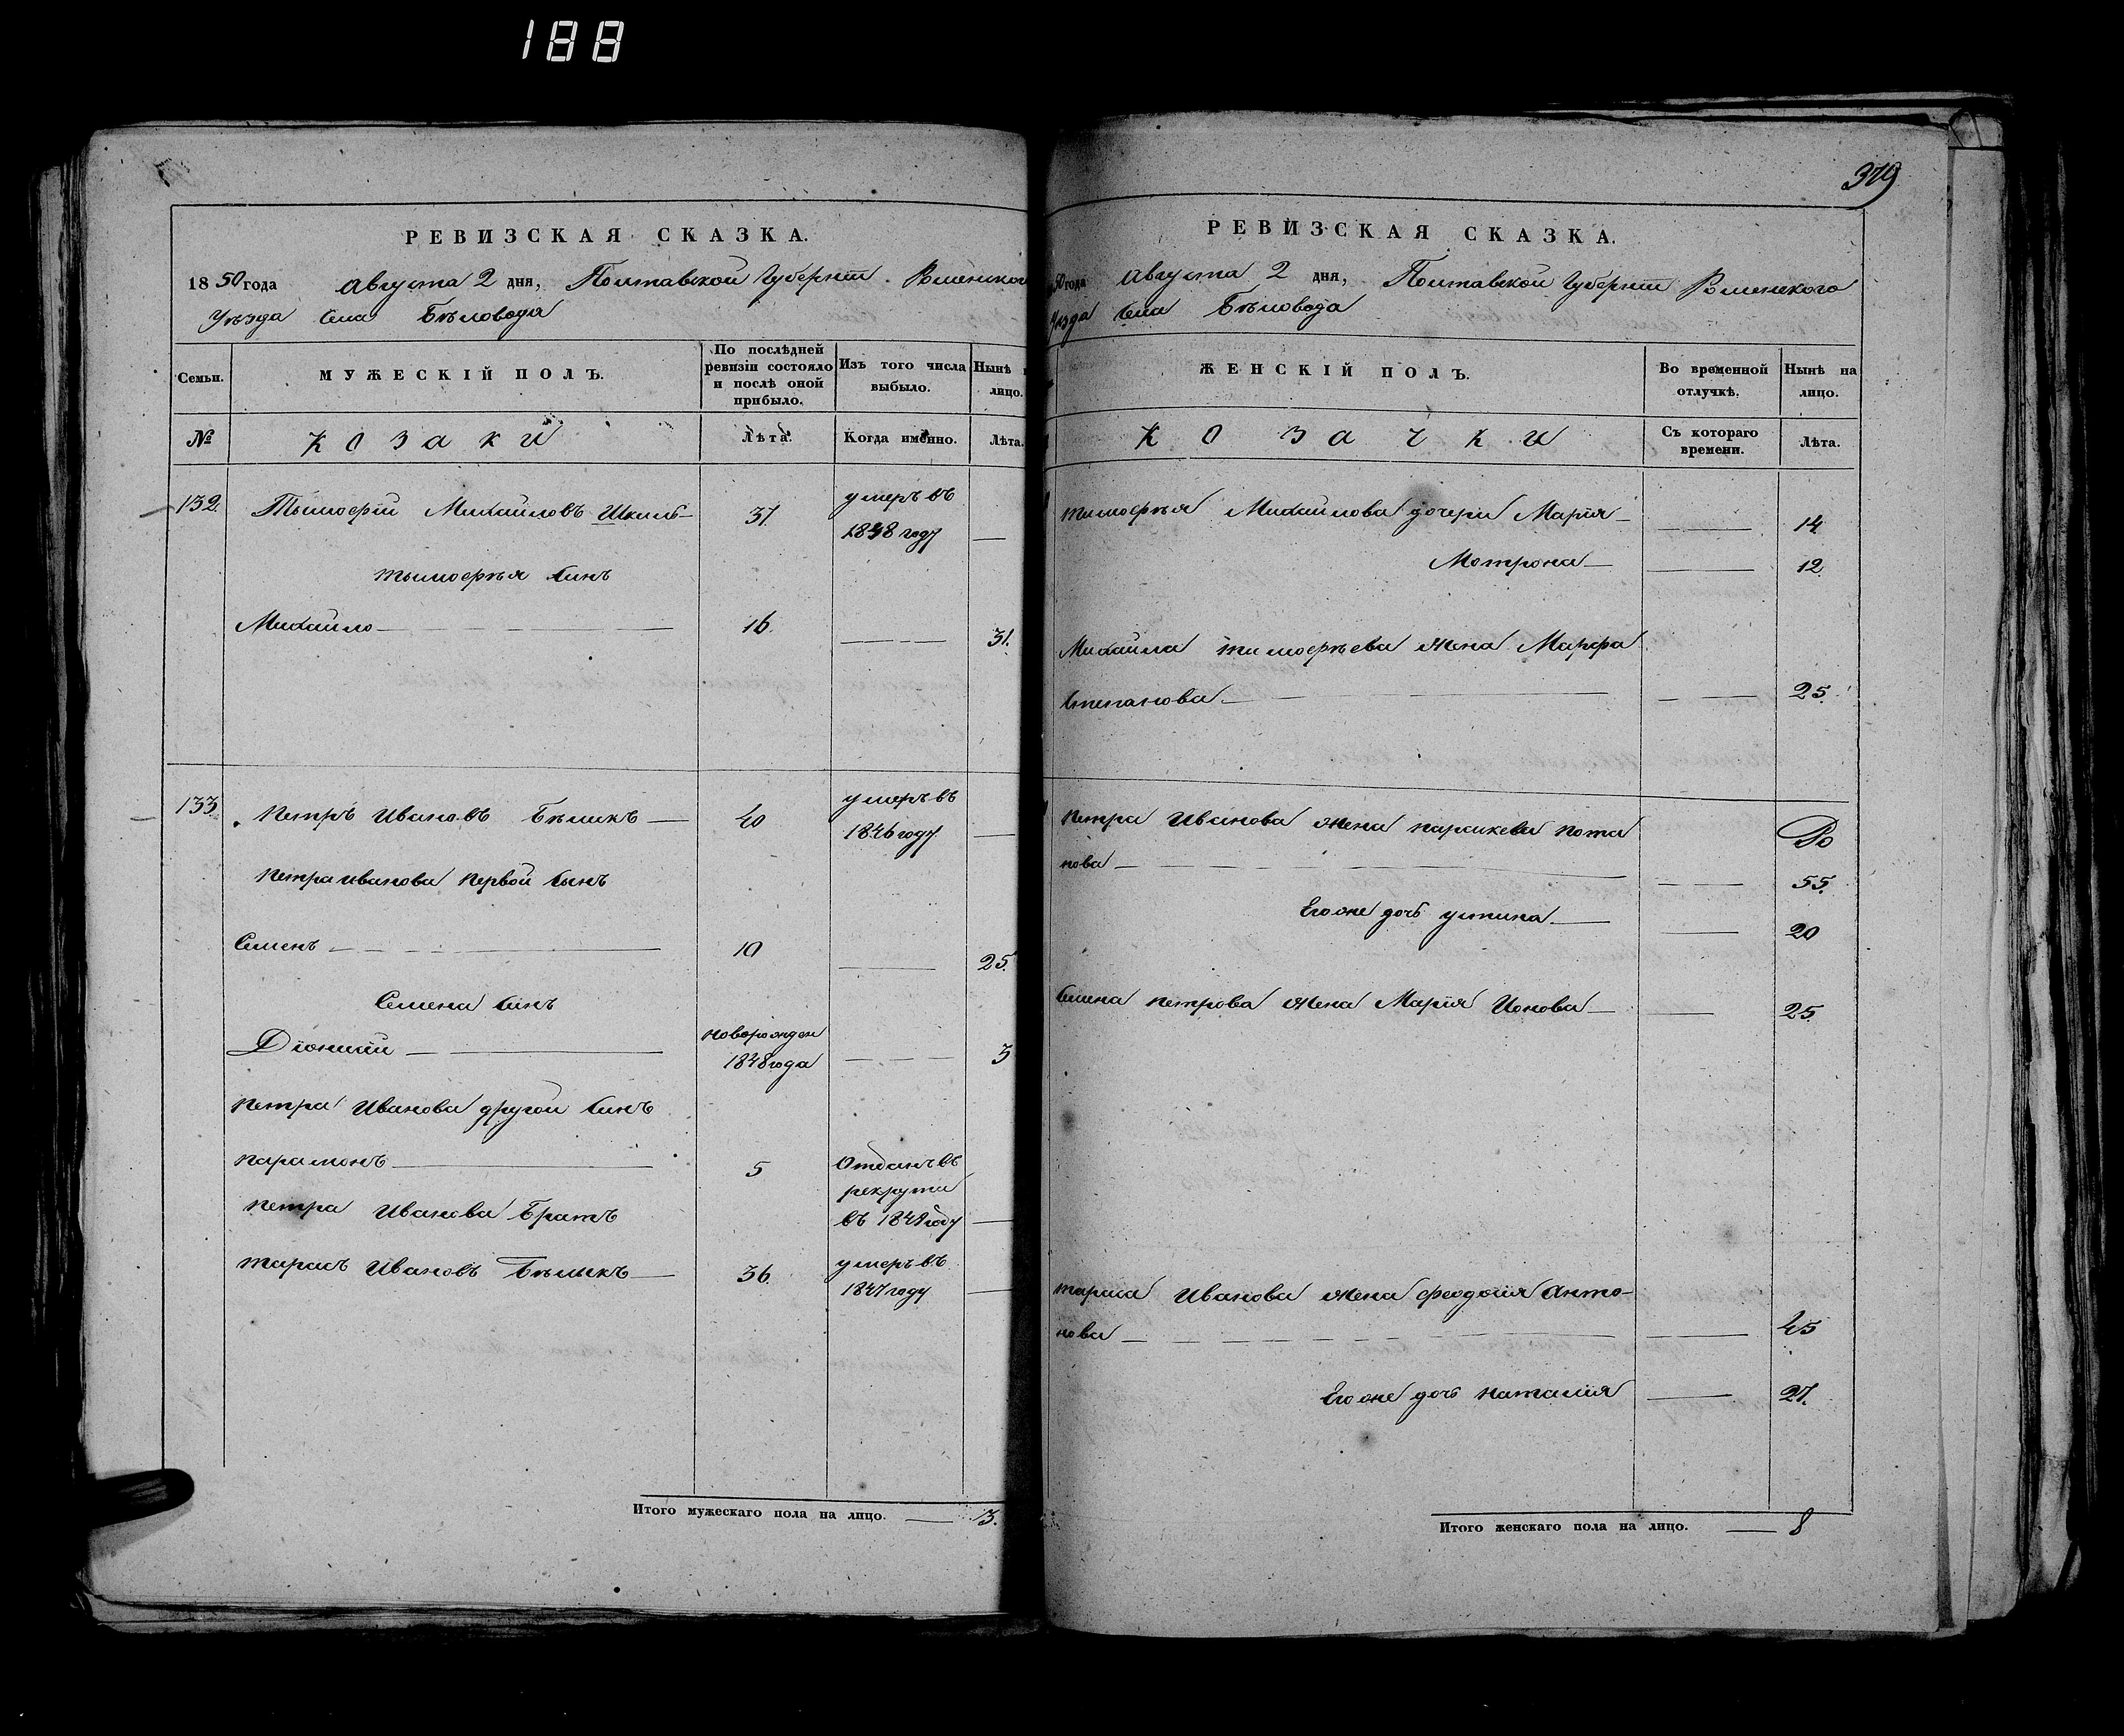 188
379
РЕВИЗСКАЯ СКАЗКА.
1850 года Августа 2 дня, Полтавской Губернии Роменского
Уѣзда Села Бѣловода
Семьи.
МУЖЕСКІЙ ПОЛЪ.
По послѣдней ревизіи состояло и послѣ оной прибыло.
Изъ того числа выбыло.
Нынѣ
лицо.
№
Козаки
Лѣта.
Когда именно.
Лѣта.
132. Тымофій Михайловъ 37 умеръ въ
1848 году —
Тымофѣя Синъ
Михайло — 16. — 31.
133 Петръ Ивановъ Бѣликъ — 40 умеръ въ
1846 году —
Петра Иванова Первой Сынъ
Семенъ — 10 — 25.
Семена Синъ
Діонисій — новорожден
1848 года — 3
Петра Иванова другой Синъ
Парамонъ — 5 Отданъ въ
рекрута
Петра Иванова Братъ въ году —
Тарасъ Ивановъ Бѣлыкъ — 36. умеръ въ
1847 году —
Итого мужескаго пола на лицо. — 3.
РЕВИЗСКАЯ СКАЗКА.
50 года Августа 2 дня, Полтавской Губернии Роменского
Уѣзда Села Бѣловода
ЖЕНСКІЙ ПОЛЪ.
Во временной отлучкѣ.
Нынѣ на лицо.
Козачки
Съ котораго времени.
Лѣта.
Тимофѣя Михайлова дочери Марія — — 14
Мотрона — — 12
Михайла Тимофѣева жена Марфа
Степанова — — 25.
Петра Иванова жена Параскева Пота
пова — — 55.
Его же дочь Устина — — 20
Семена Петрова жена Марія Ионова — — 25
Тараса Иванова жена Феодосія Анто-
нова — — 45
Его же дочь Наталія — 27.
Итого женскаго пола на лицо. — 8